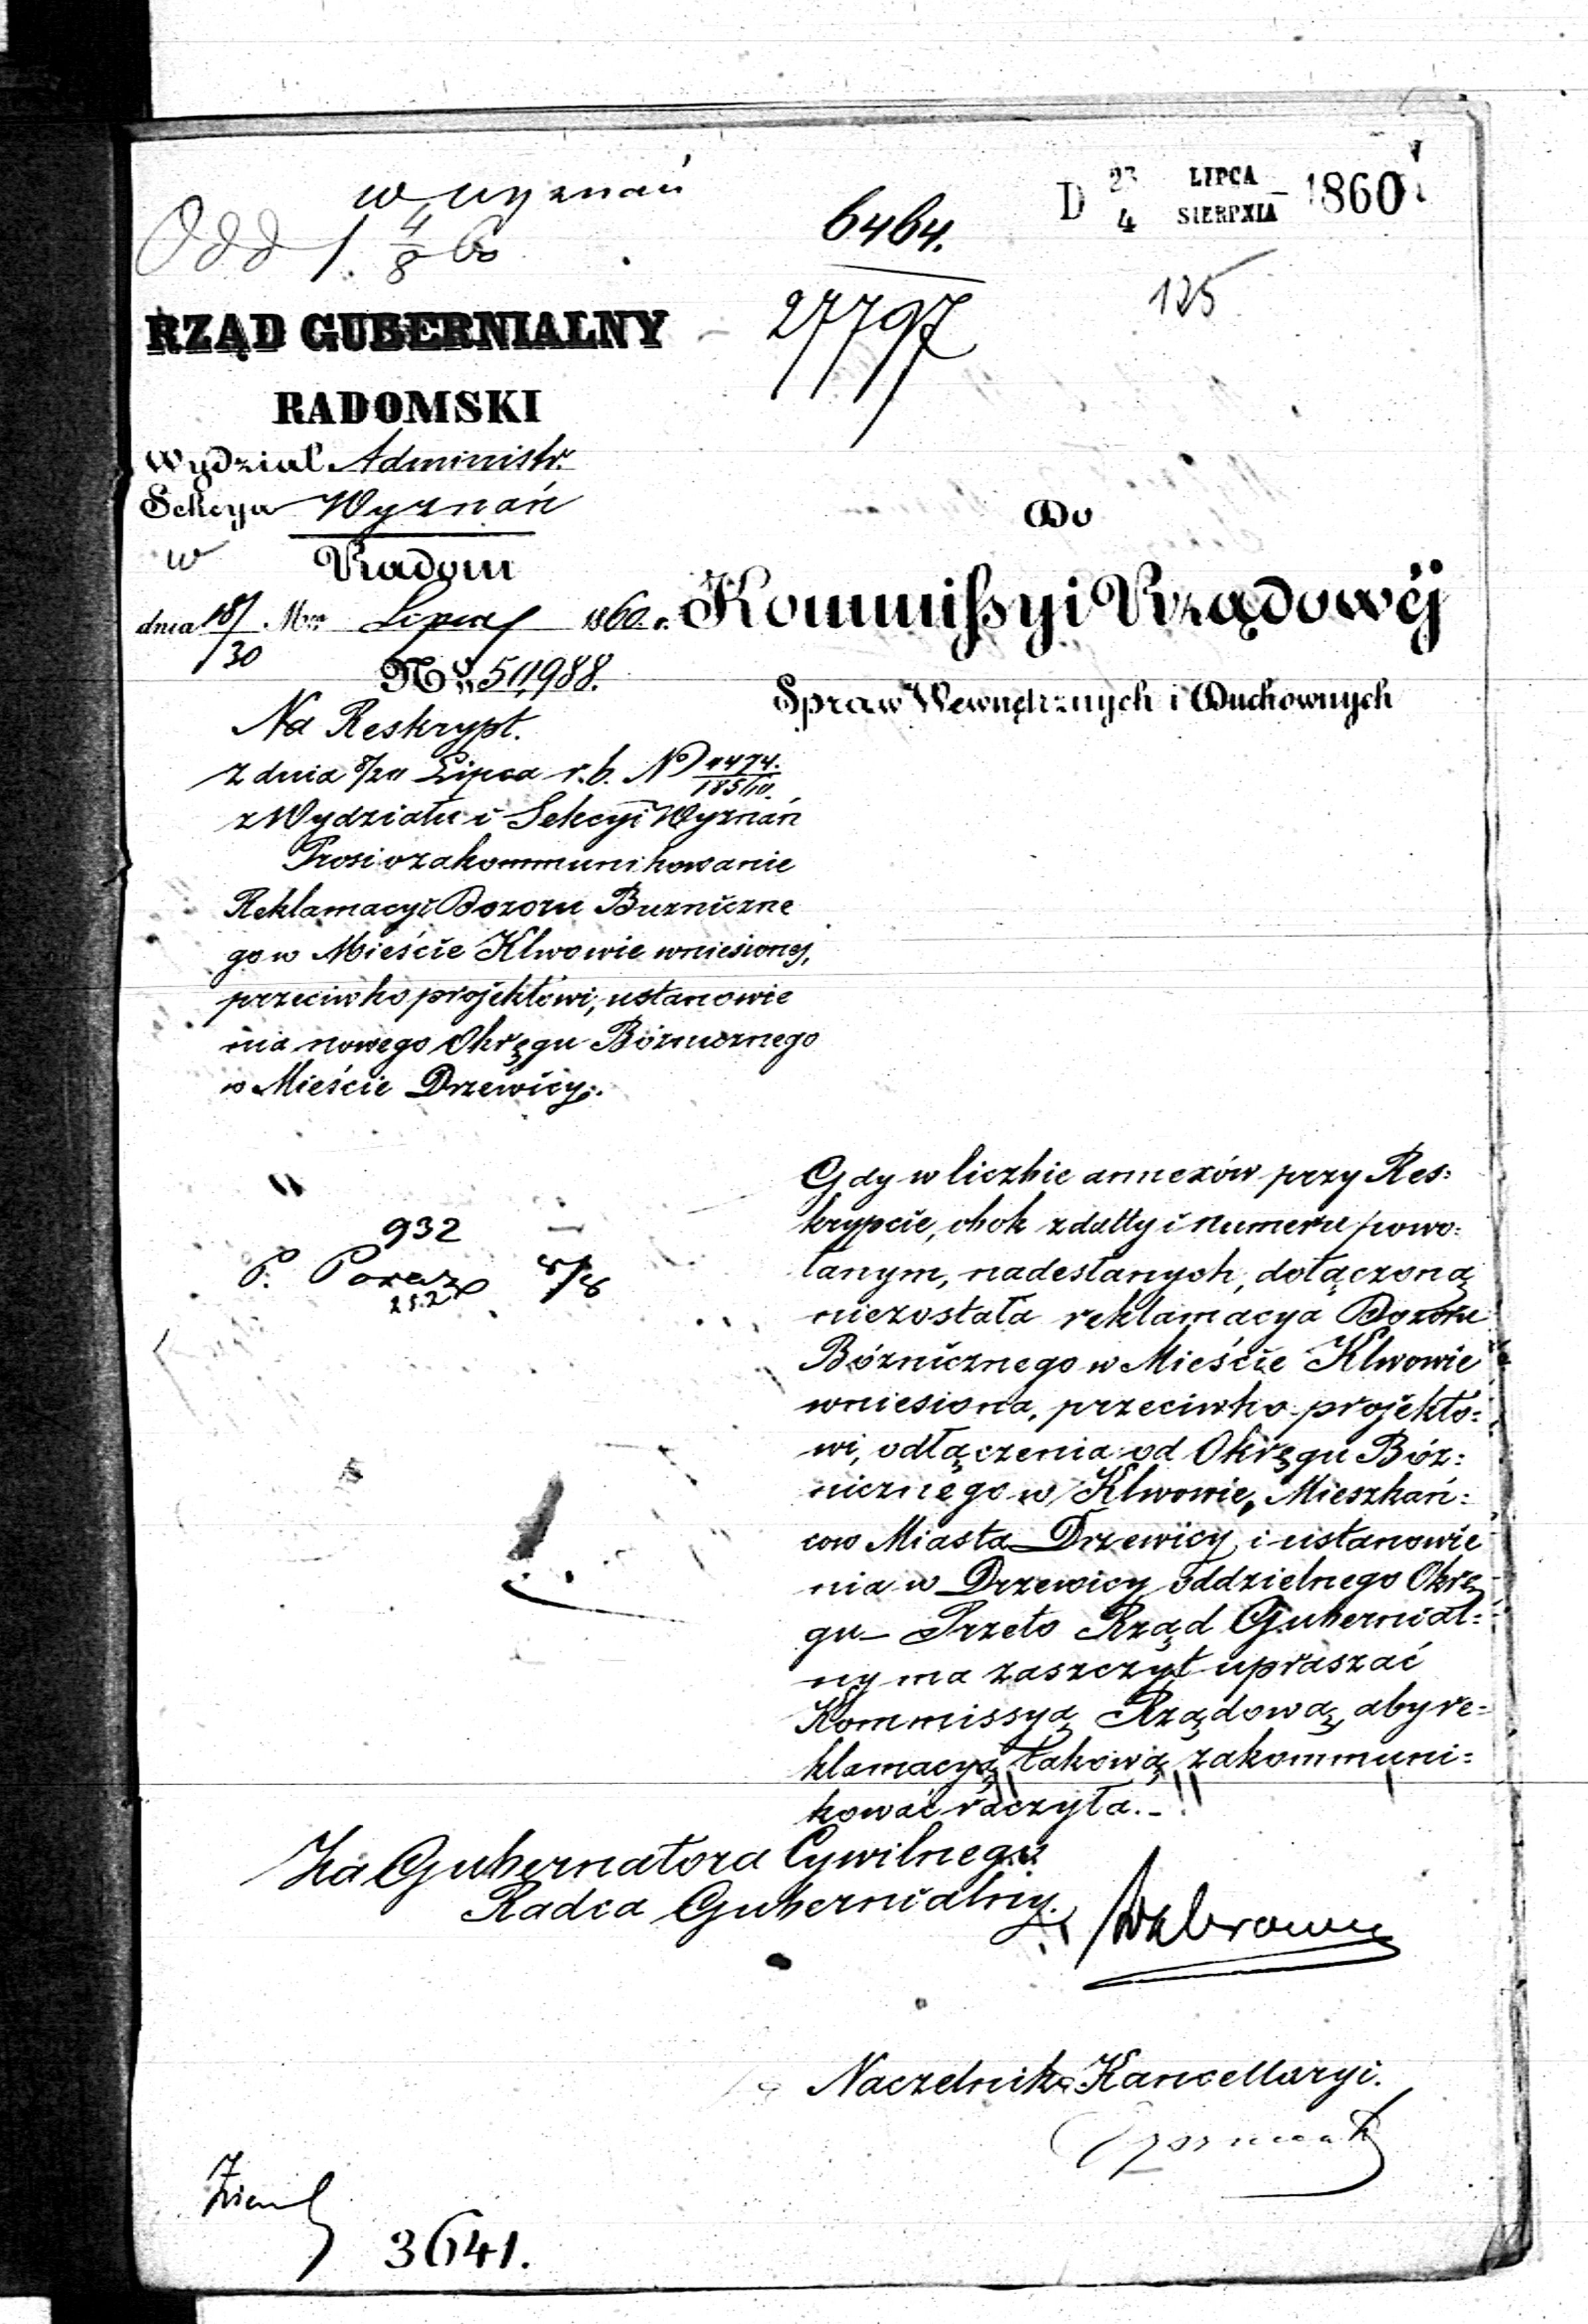 w wyznań
Odd 1. 4/8 60
6464.
27797
D 23/4 LIPCA/SIERPNIA 1860
125
RZĄD GUBERNIALNY
RADOMSKI
Wydział Administr.
Sekcya Wyznań
w Radom
dnia 18/30 Mca Lipca 1860 r.
No 50,988.
Do
Kommissyi Rządowéj
Spraw Wewnętrznych i Duchownych
Na Reskrypt.
z dnia 8/20 Lipca r. b. No
z Wydziału i Sekcyi Wyznań
Prosi o zakommunikowanie
Reklamacyi Dozoru Buzniczne
go w Mieście Klwowie wniesionej,
przeciwko projektowi, ustanowie
nia nowego Okręgu Bóżnicznego
w Mieście Drzewicy.
932
P.
Gdy w liczbie annexów przy Res=
krypcie, obok z datty i numeru powo=
łanym, nadesłanych, dołączoną
niezostała reklamacya Dozoru
Bóżnicznego w Mieście Klwowie
wniesiona, przeciwko projekto=
wi, odłączenia od Okręgu Bóż=
nicznego w Klwowie, Mieszkań=
cow Miasta Drzewicy i ustanowie
nia w Drzewicy oddzielnego Okrę
gu – Przeto Rząd Gubernial=
ny ma zaszczyt upraszać
Kommissyą Rządową, aby re=
klamacyą takową zakommuni=
kować raczyła. –
Za Gubernatora Cywilnego
Radca Gubernialny.
Naczelnik Kancellaryi.
3641.